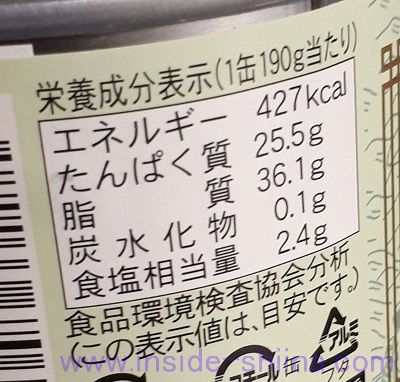 栄養成分表示(1缶190g当たり)
エネルギー 427kcal
たんぱく質 25.5g
脂質 36.1g
炭水化物 0.1g
食塩相当量 2.4g
食品環境検査協会分析
(この表示値は、目安です。)
アルミ